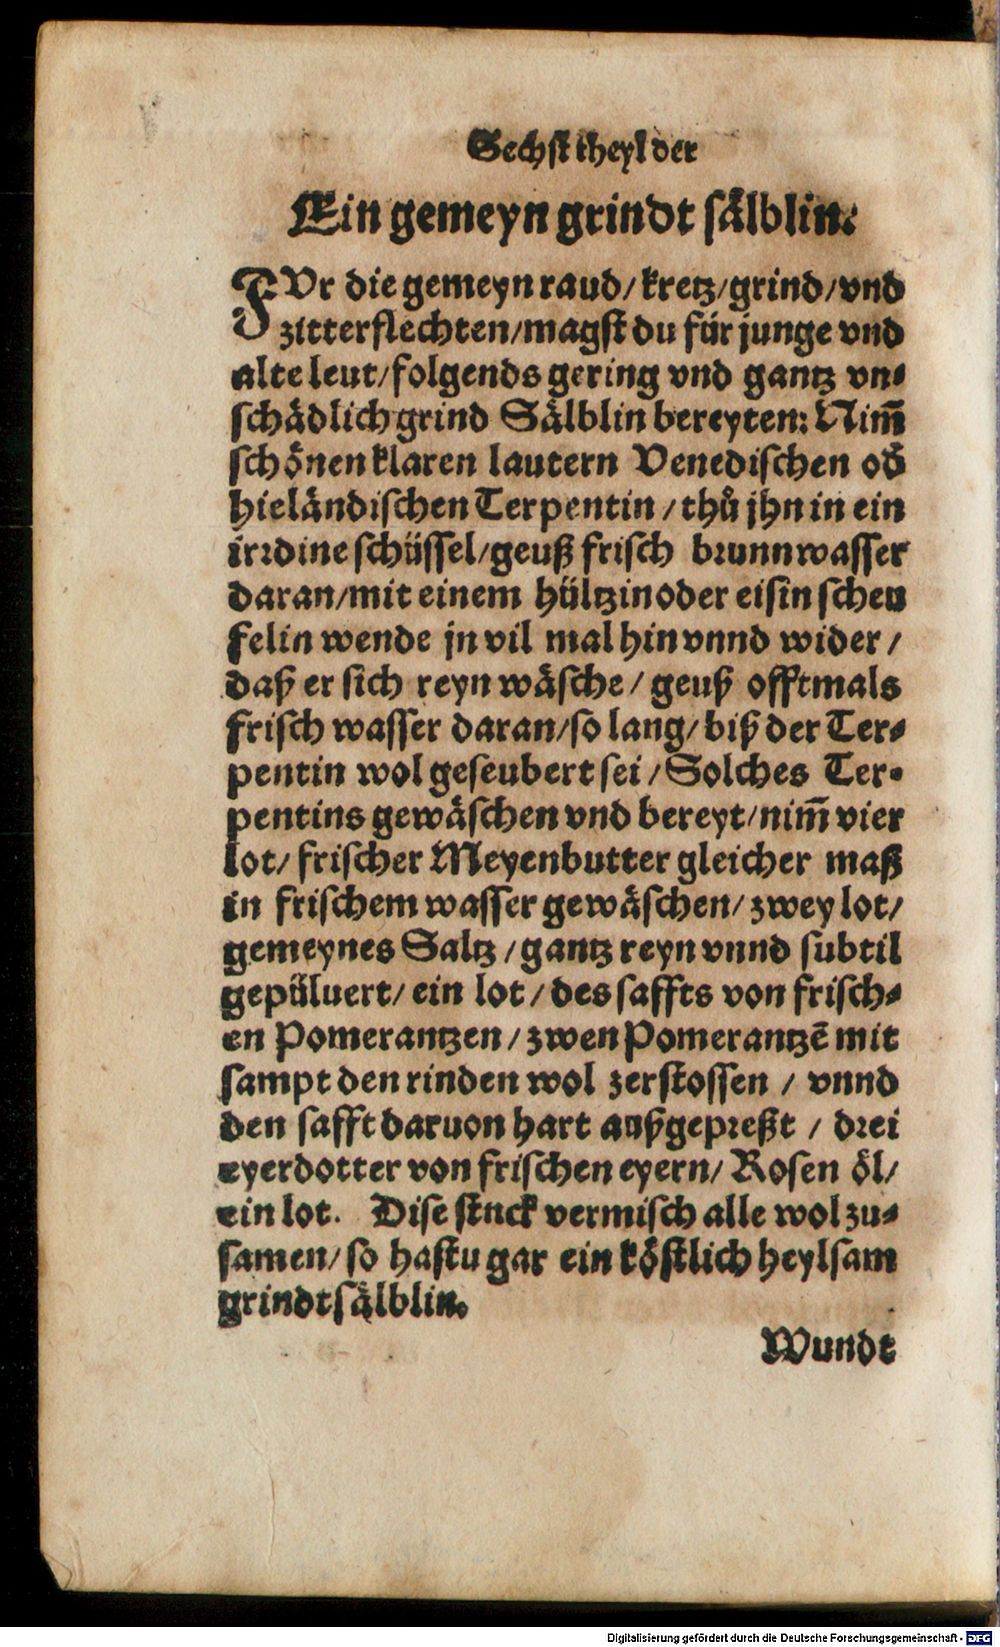 Sechst theyl der
Ein gemeyn grindt sälblin.
FVr die gemeyn raud/kretz/grind/vnd
zitterflechten/magst du für junge vnd
alte leut/folgends gering vnd gantz vn⸗
schädlich grind Sälblin bereyten: Nim̃
schönen klaren lautern Venedischen od̕
hieländischen Terpentin/thů jhn in ein
irꝛdine schüssel/geuß frisch bꝛunnwasser
daran/mit einem hültzin oder eisin scheu
felin wende jn vil mal hin vnnd wider/
daß er sich reyn wäsche/geuß offtmals
frisch wasser daran/so lang/biß der Ter⸗
pentin wol geseubert sei/Solches Ter⸗
pentins gewäschen vnd bereyt/nim̃ vier
lot/frischer Meyenbutter gleicher maß
in frischem wasser gewäschen/zwey lot/
gemeynes Saltz/gantz reyn vnnd subtil
gepüluert/ein lot/des saffts von frisch⸗
en Pomerantzen/zwen Pomerantzẽ mit
sampt den rinden wol zerstossen/vnnd
den safft daruon hart außgepꝛeßt/dꝛei
eyerdotter von frischen eyern/Rosen öl/
ein lot. Dise stuck vermisch alle wol zu⸗
samen/so hastu gar ein köstlich heylsam
grindtsälblin.
Wundt
Digitalisierung gefördert durch die Deutsche Forschungsgemeinschaft - DFG